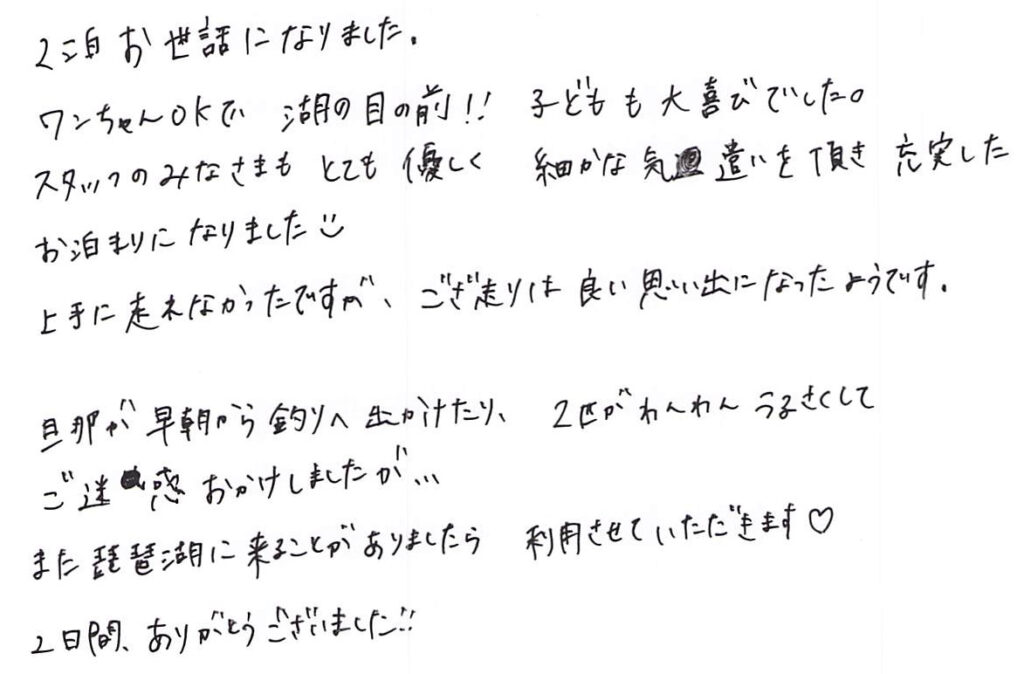 2泊お世話になりました.
ワンちゃんOKで 湖の目の前!! 子どもも大喜びでした。
スタッフのみなさまも とても 優しく 細かな気遣いを頂き 充実した
お泊まりになりました☺
上手に走れなかったですが、ござ走りは良い思い出になったようです.
旦那が早朝から釣りへ出かけたり、 2匹がわんわんうるさくして
ご迷惑おかけしましたが…
また琵琶湖に来ることがありましたら 利用させていただきます♡
2日間、ありがとうございました!!